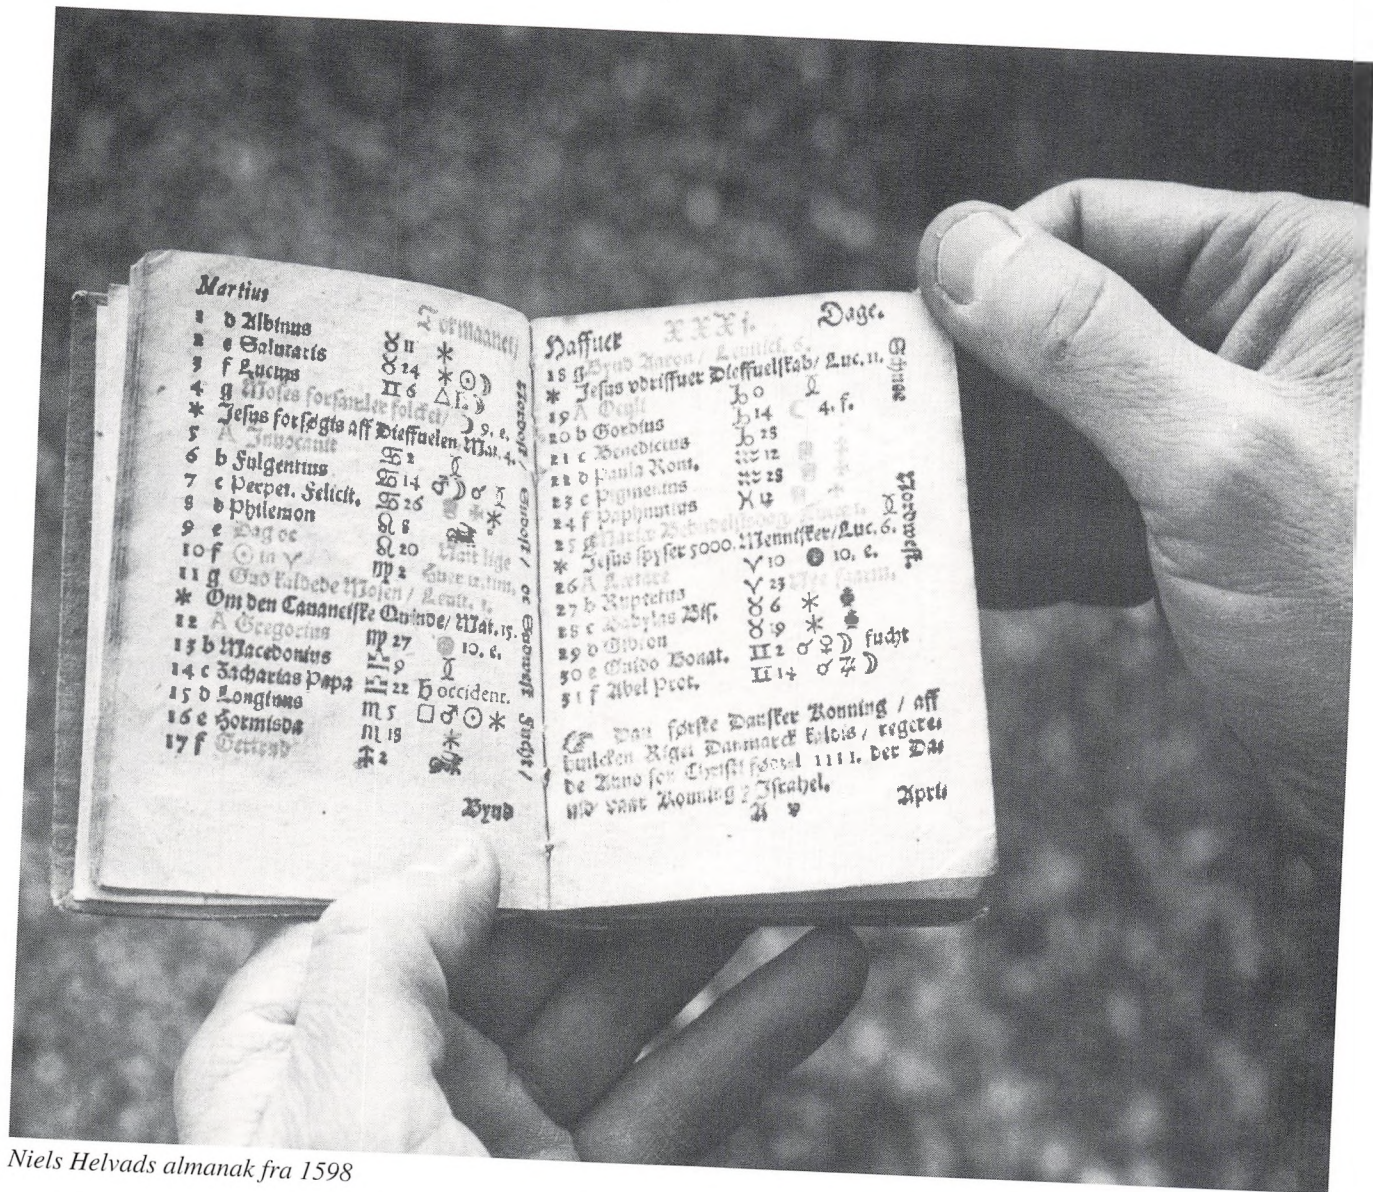 Martius Tormaanetz
1 d Albinus ♉ 11 ⚹
2 e Salutaris ♉ 24 ⚹ ☉ ☽
3 f Lucius ♊ 6 △
4 g Moses forsamler folcket/ ☽ 9. e.
* Jesus forsøgis aff Dieffuelen Mat. 4.
5 A Innocauit ♋ 2
6 b Fulgentius ♋ 14 ♂ ☽ ☌
7 c Perpet. Felicit. ♋ 26
8 d Philemon ♌ 8 ⚹
9 e Dag oc ♌ 20 Natt lige
10 f ☉ in ♈ ♍ 2
11 g Gud kaldede Mosen / Leuit. 1.
* Om den Cananeiske Quinde/ Mat. 15.
12 A Gregorius ♍ 27 10. e.
13 b Macedonius ♎ 9
14 c Zacharias Papa ♎ 22 ♄ occident.
15 d Longinus ♏ 5 □ ♂ ☉ ⚹
16 e Hormisda ♏ 18 ⚹
17 f Gertrud ♐ 2
Nordost / Sudost / oc Sudwest Fucht /
Bynd
Haffuer XXXI. Dage.
18 g Bynd Aaron / Leuitici. 6.
* Jesus vdriffuer Dieffuelskab/ Luc. 11.
19 A Oculi ♑ 0
20 b Gordius ♑ 14 ☾ 4. f.
21 c Benedictus ♑ 28
22 d Paula Rom. ♒ 12
23 e Pigmenius ♒ 28
24 f Paphnutius ♓ 12
25 g Mariæ
* Jesus spyser 5000. Mennisker/Luc. 6.
26 A Lætare ♈ 10 ● 10. e.
27 b Rupertus ♈ 23
28 c Babylas Bis. ♉ 6 ⚹
29 d Gideon ♉ 19 ⚹
30 e Guido Bonat. ♊ 2 ☌ ♀ ☽ fucht
31 f Abel Prot. ♊ 14 ☌ ♃ ☽
Nordwest.
☞ Dan første Dansker Konning / aff
huilcken Riget Danmarck kaldis / regere
de Anno for Christi fødzel 1111. der Da
uid vaar Konning y Israhel.
A v Aprilis
Niels Helvads almanak fra 1598